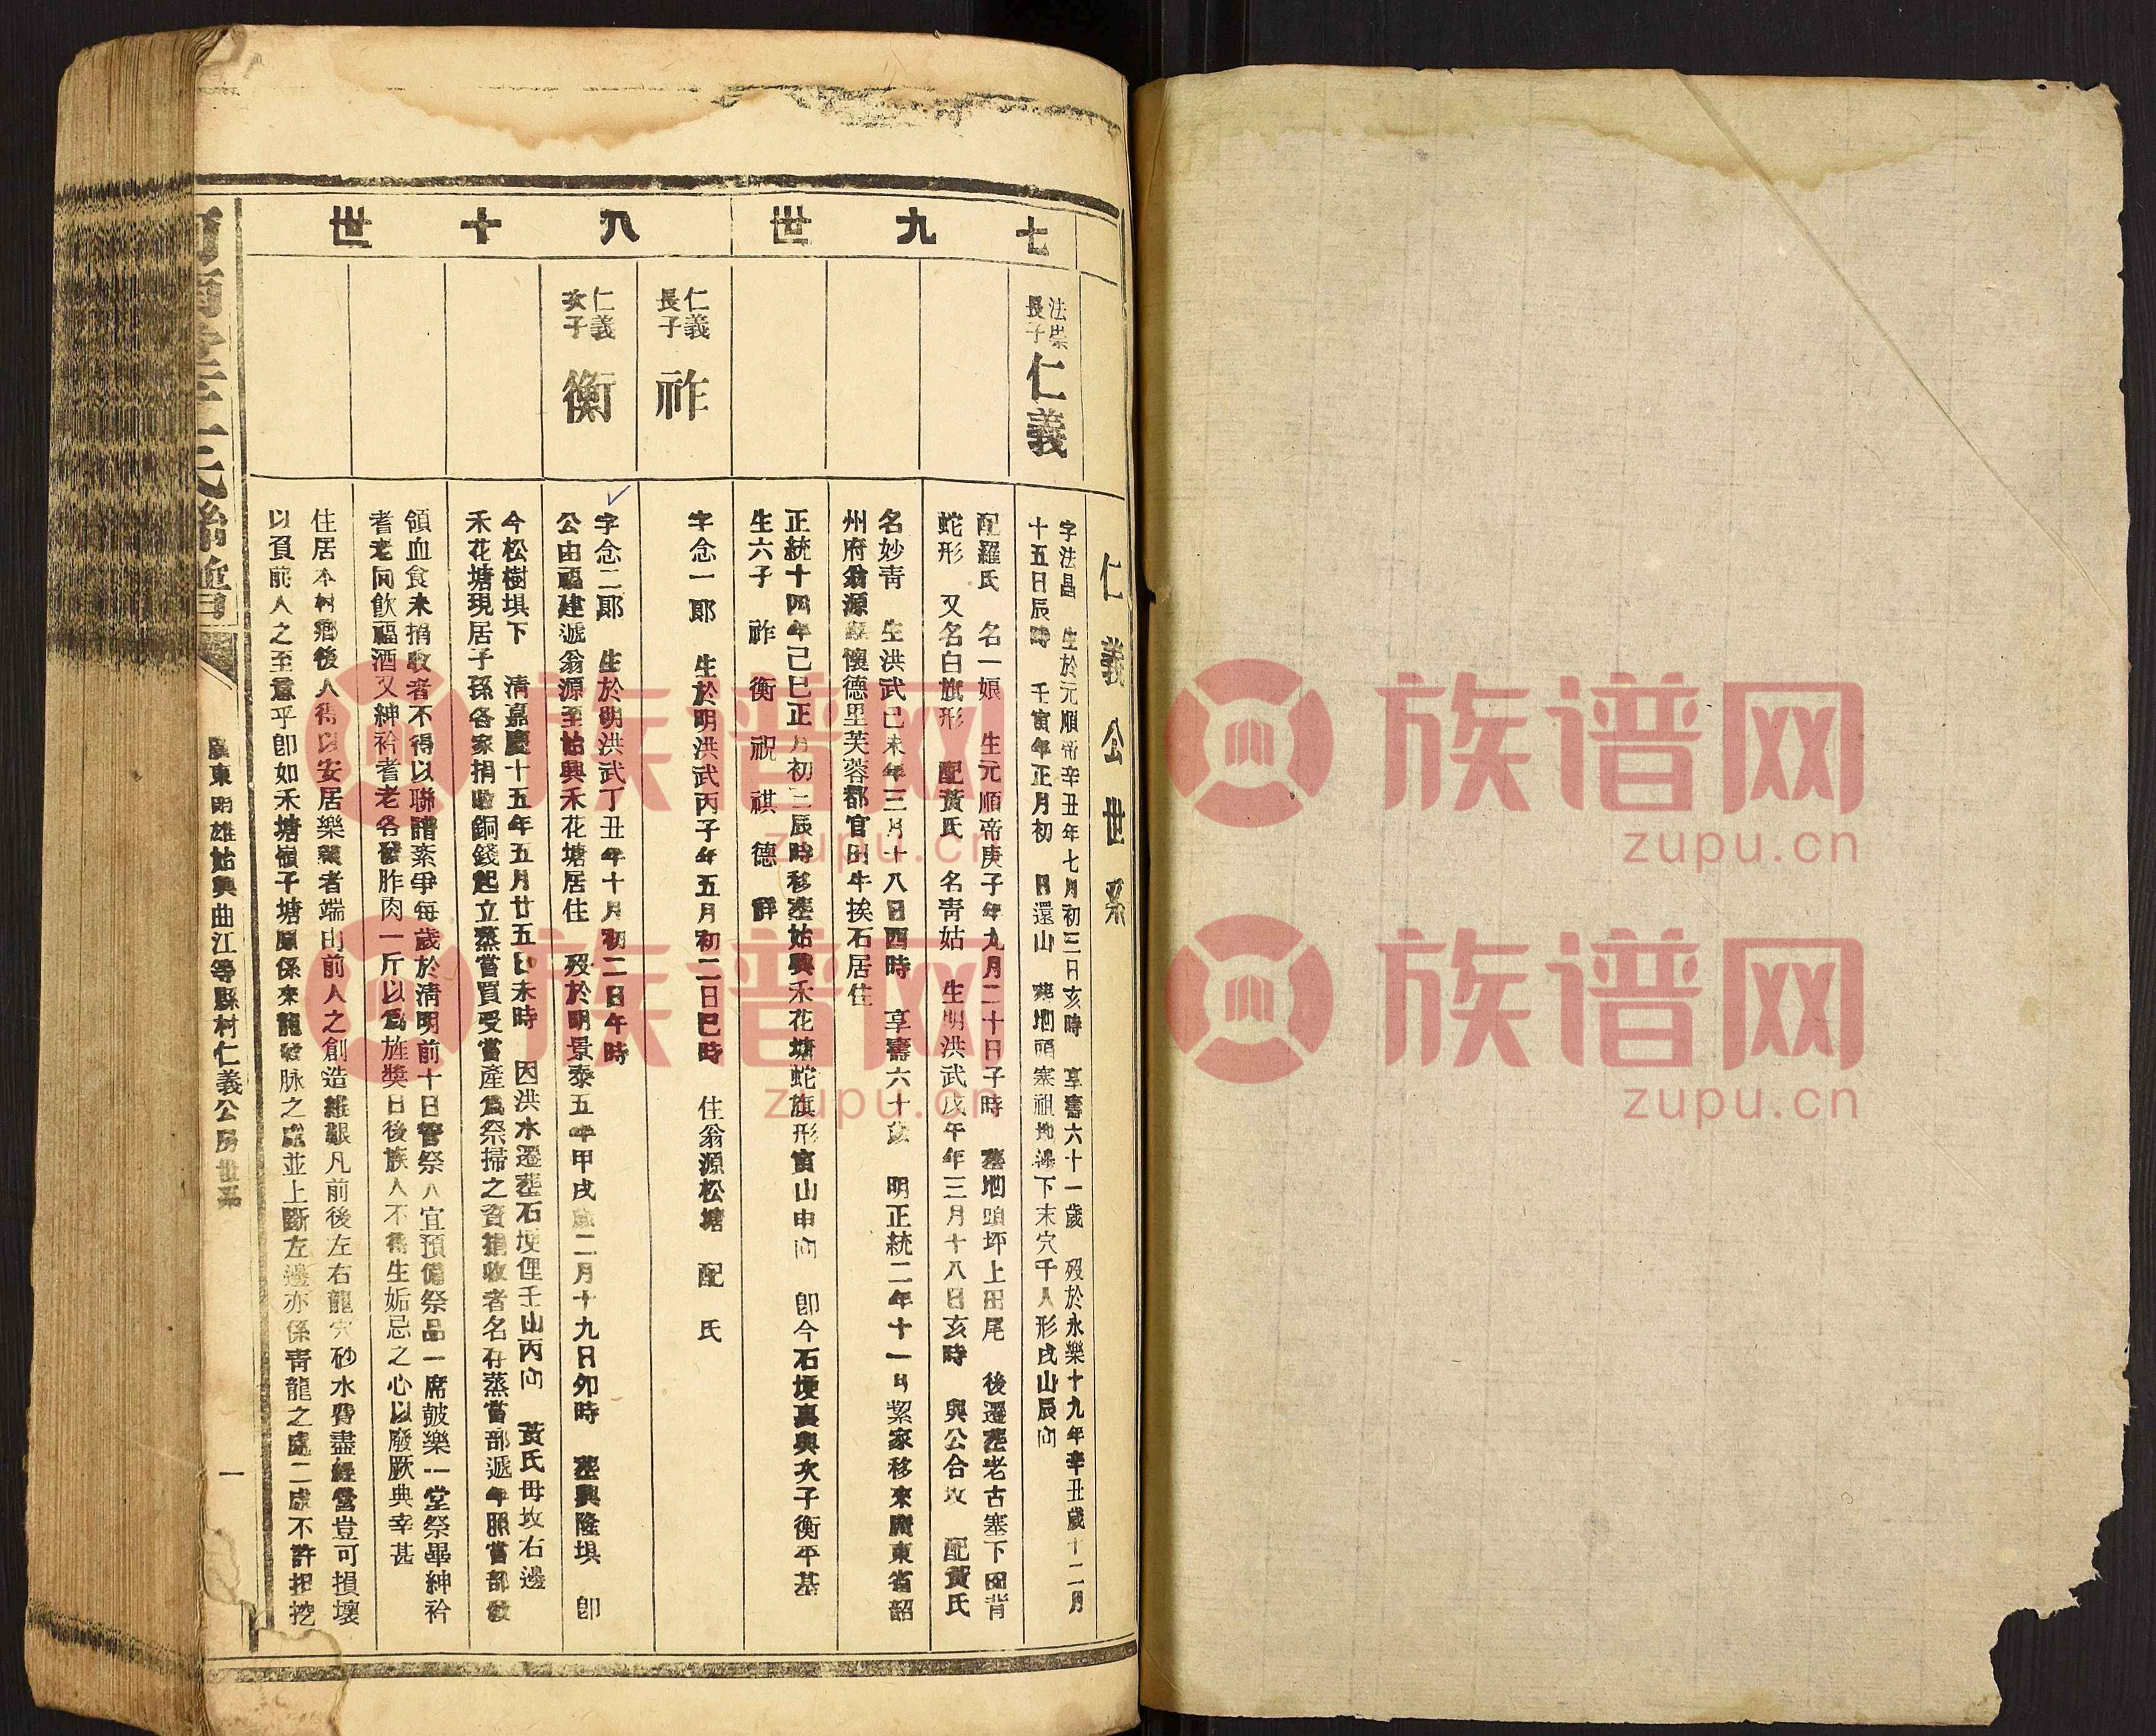 仁義公世系
七九世
法崇長子
仁義
字法昌 生於元順帝辛丑年七月初三日亥時 享壽六十一歲 殁於永樂十九年辛丑歲十二月
十五日辰時 壬寅年正月初 日還山 葬地頭寨祖地邊下末穴千人形戌山辰向
配羅氏 名一娘 生元順帝庚子年九月二十日子時 葬地頭坪上田尾 後遷葬老古寨下田背
蛇形 又名白旗形 配黃氏 名靑姑 生明洪武戊午年三月十八日亥時 與公合坟 配黃氏
名妙靑 生洪武己未年三月十八日酉時 享壽六十歲 明正統二年十一月絜家移來廣東省韶
州府翁源縣懷德里芙蓉都官田牛挨石居住
正統十四年己巳正月初二辰時移葬始興禾花塘蛇旗形寅山申向 卽今石埂裏與次子衡平基
生六子 祚 衡 祝 祺 德 群
八十世
仁義長子
祚
字念一郞 生於明洪武丙子年五月初二日巳時 住翁源松塘 配 氏
仁義次子
衡
字念二郞 生於明洪武丁丑年十月初二日午時
公由福建遞翁源至始興禾花塘居住 殁於明景泰五年甲戌歲二月十九日卯時 葬興隆埧 卽
今松樹埧下 清嘉慶十五年五月廿五日未時 因洪水遷葬石埂俚壬山丙向 黃氏毋坟右邊
禾花塘現居子孫各家捐收銅錢起立蒸嘗買受嘗產爲祭掃之資捐收者名存蒸嘗部遞年照嘗部
領血食未捐收者不得以聯譜紊爭每歲於清明前十日管祭人宜預備祭品一席皷樂一堂祭畢紳衿
耆老同飲福酒又紳衿耆老各發胙肉一斤以爲旌獎日後族人不得生姤忌之心以廢厥典幸甚
住居本村鄕後人得以安居樂業者端由前人之創造維艱凡前後左右龍穴砂水費盡經營豈可損壞
以負前人之至意乎卽如禾塘嶺子塘原係來龍發脉之處並上斷左邊亦係靑龍之處二處不許担挖
廣東南雄始興曲江等縣村仁義公房世系
一
族谱网
zupu.cn
族谱网
zupu.cn
族谱网
zupu.cn
族谱网
zupu.cn